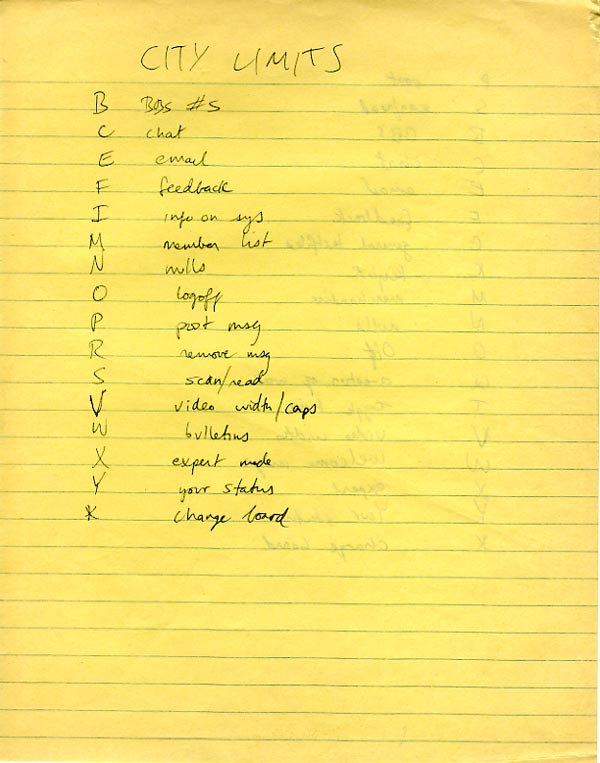 CITY LIMITS
B BBS #s
C chat
E email
F feedback
I info on sys
M member list
N nulls
O logoff
P post msg
R remove msg
S scan/read
V video width/caps
W bulletins
X expert mode
Y your status
* change board